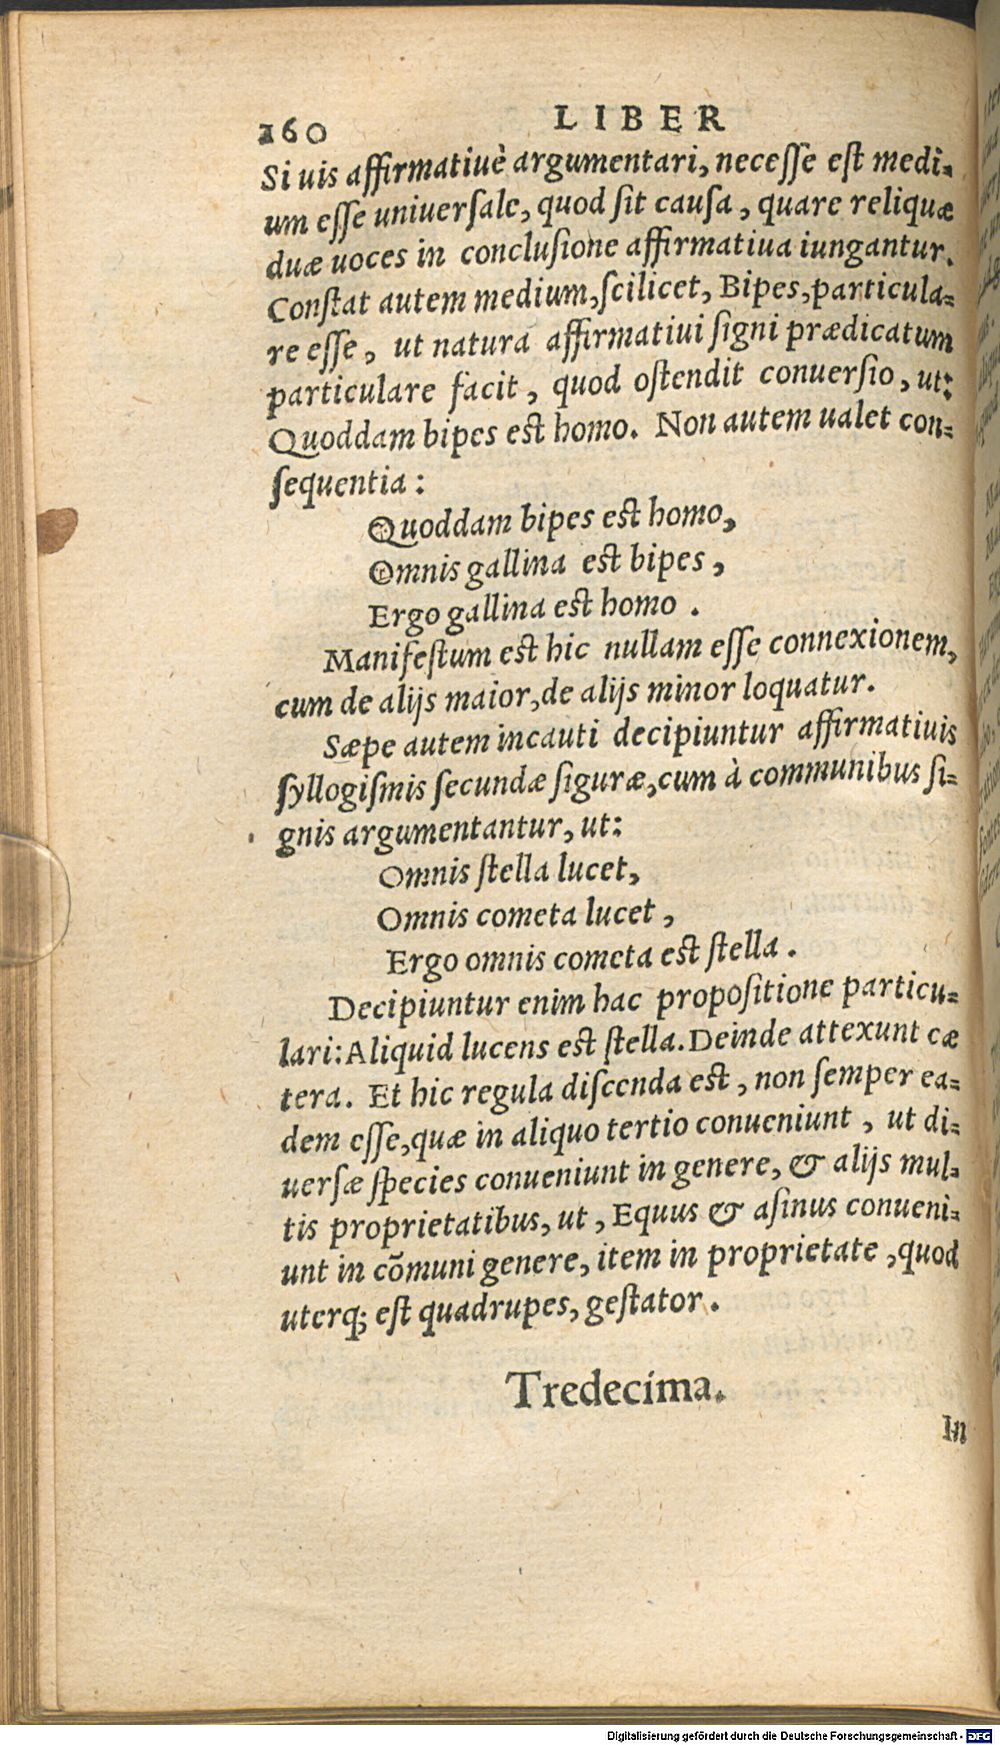 160 LIBER
Si uis affirmatiuè argumentari, necesse est medi-
um esse uniuersale, quod sit causa, quare reliquæ
duæ uoces in conclusione affirmatiua iungantur.
Constat autem medium, scilicet, Bipes, particula-
re esse, ut natura affirmatiui signi prædicatum
particulare facit, quod ostendit conuersio, ut:
Quoddam bipes est homo. Non autem ualet con-
sequentia:
Quoddam bipes est homo,
Omnis gallina est bipes,
Ergo gallina est homo.
Manifestum est hic nullam esse connexionem,
cum de alijs maior, de alijs minor loquatur.
Sæpe autem incauti decipiuntur affirmatiuis
syllogismis secundæ figuræ, cum à communibus si-
gnis argumentantur, ut:
Omnis stella lucet,
Omnis cometa lucet,
Ergo omnis cometa est stella.
Decipiuntur enim hac propositione particu-
lari: Aliquid lucens est stella. Deinde attexunt cæ
tera. Et hic regula discenda est, non semper ea-
dem esse, quæ in aliquo tertio conueniunt, ut di-
uersæ species conueniunt in genere, & alijs mul-
tis proprietatibus, ut, Equus & asinus conueni-
unt in cõmuni genere, item in proprietate, quod
uterq; est quadrupes, gestator.
Tredecima.
In
Digitalisierung gefördert durch die Deutsche Forschungsgemeinschaft - DFG